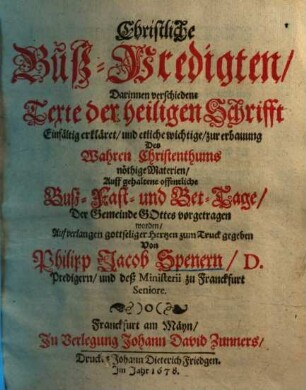 Christliche
Buß-Predigten/
Darinnen verschiedene
Texte der heiligen Schrifft
Einfältig erkläret/und etliche wichtige/zur erbauung
Des
Wahren Christenthums
nöthige Materien/
Auff gehaltene offentliche
Buß-Fast- und Bet-Tage/
Der Gemeinde GOttes vorgetragen
worden/
Auf verlangen gottseliger Hertzen zum Truck gegeben
Von
Philipp Jacob Spenern/ D.
Predigern/ und deß Ministerii zu Franckfurt
Seniore.
Franckfurt am Mäyn/
In Verlegung Johann David Zunners/
Druckts Johann Dieterich Friedgen.
Im Jahr 1678.